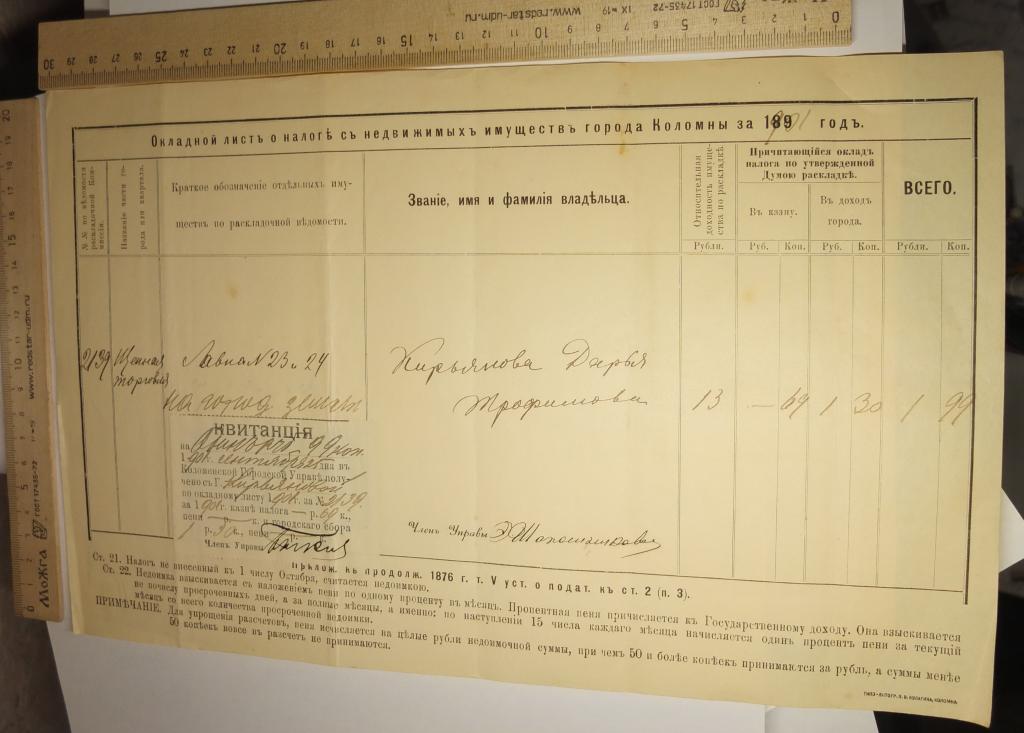 0 1 2 3 4 5 6 7 8 9 10 11 12 13 14 15 16 17 18 19 20 21 22 23 24 25 26 27 28 29 30
ГОСТ17435-72
IX м-19
www.redstar-udm.ru
МоЖгА
ГОСТ 17435-72
www.redstar-udm.ru
Окладной листъ о налогѣ съ недвижимыхъ имуществъ города Коломны за 1901 годъ.
№№ по вѣдомости раскладочной Коммиссіи.
Названіе части города или квартала.
Краткое обозначеніе отдѣльныхъ имуществъ по раскладочной вѣдомости.
Званіе, имя и фамилія владѣльца.
Относительная доходность имущества по раскладкѣ
Причитающійся окладъ
налога по утвержденной
Думою раскладкѣ.
Въ казну.
Въ доходъ
города.
ВСЕГО.
Рубли.
Руб.
Коп.
Руб.
Коп.
Рубли.
Коп.
2139
торговля
Лавка N 23 и 24
Кирьянова Дарья
на город. земле
Трофимова
13
— 69
1 30
1 99
КВИТАНЦІЯ
на
1901 г. сентября дня въ
Коломенской Городской Управѣ полу-
чено съ Г. Кирьяновой
по окладному листу 1901 г. за № 2139.
за 1901 г. казнѣ налога — р. 69 к.,
пени — р. — к. и городского сбора
1 р. 30 к., пени — р. — к.
Членъ Управы
Членъ Управы
Прилож. къ продолж. 1876 г. т. V уст. о подат. къ ст. 2 (п. 3).
Ст. 21. Налогъ не внесенный къ 1 числу Октября, считается недоимкою.
Ст. 22. Недоимка взыскивается съ наложеніемъ пени по одному проценту въ мѣсяцъ. Процентная пеня причисляется къ Государственному доходу. Она взыскивается
не по числу просроченныхъ дней, а за полные мѣсяцы, а именно: по наступленіи 15 числа каждаго мѣсяца начисляется одинъ процентъ пени за текущій
мѣсяцъ со всего количества просроченной недоимки.
ПРИМѢЧАНІЕ. Для упрощенія разсчетовъ, пеня исчисляется на цѣлые рубли недоимочной суммы, при чемъ 50 и болѣе копѣекъ принимаются за рубль, а суммы менѣе
50 копѣекъ вовсе въ разсчетъ не принимаются.